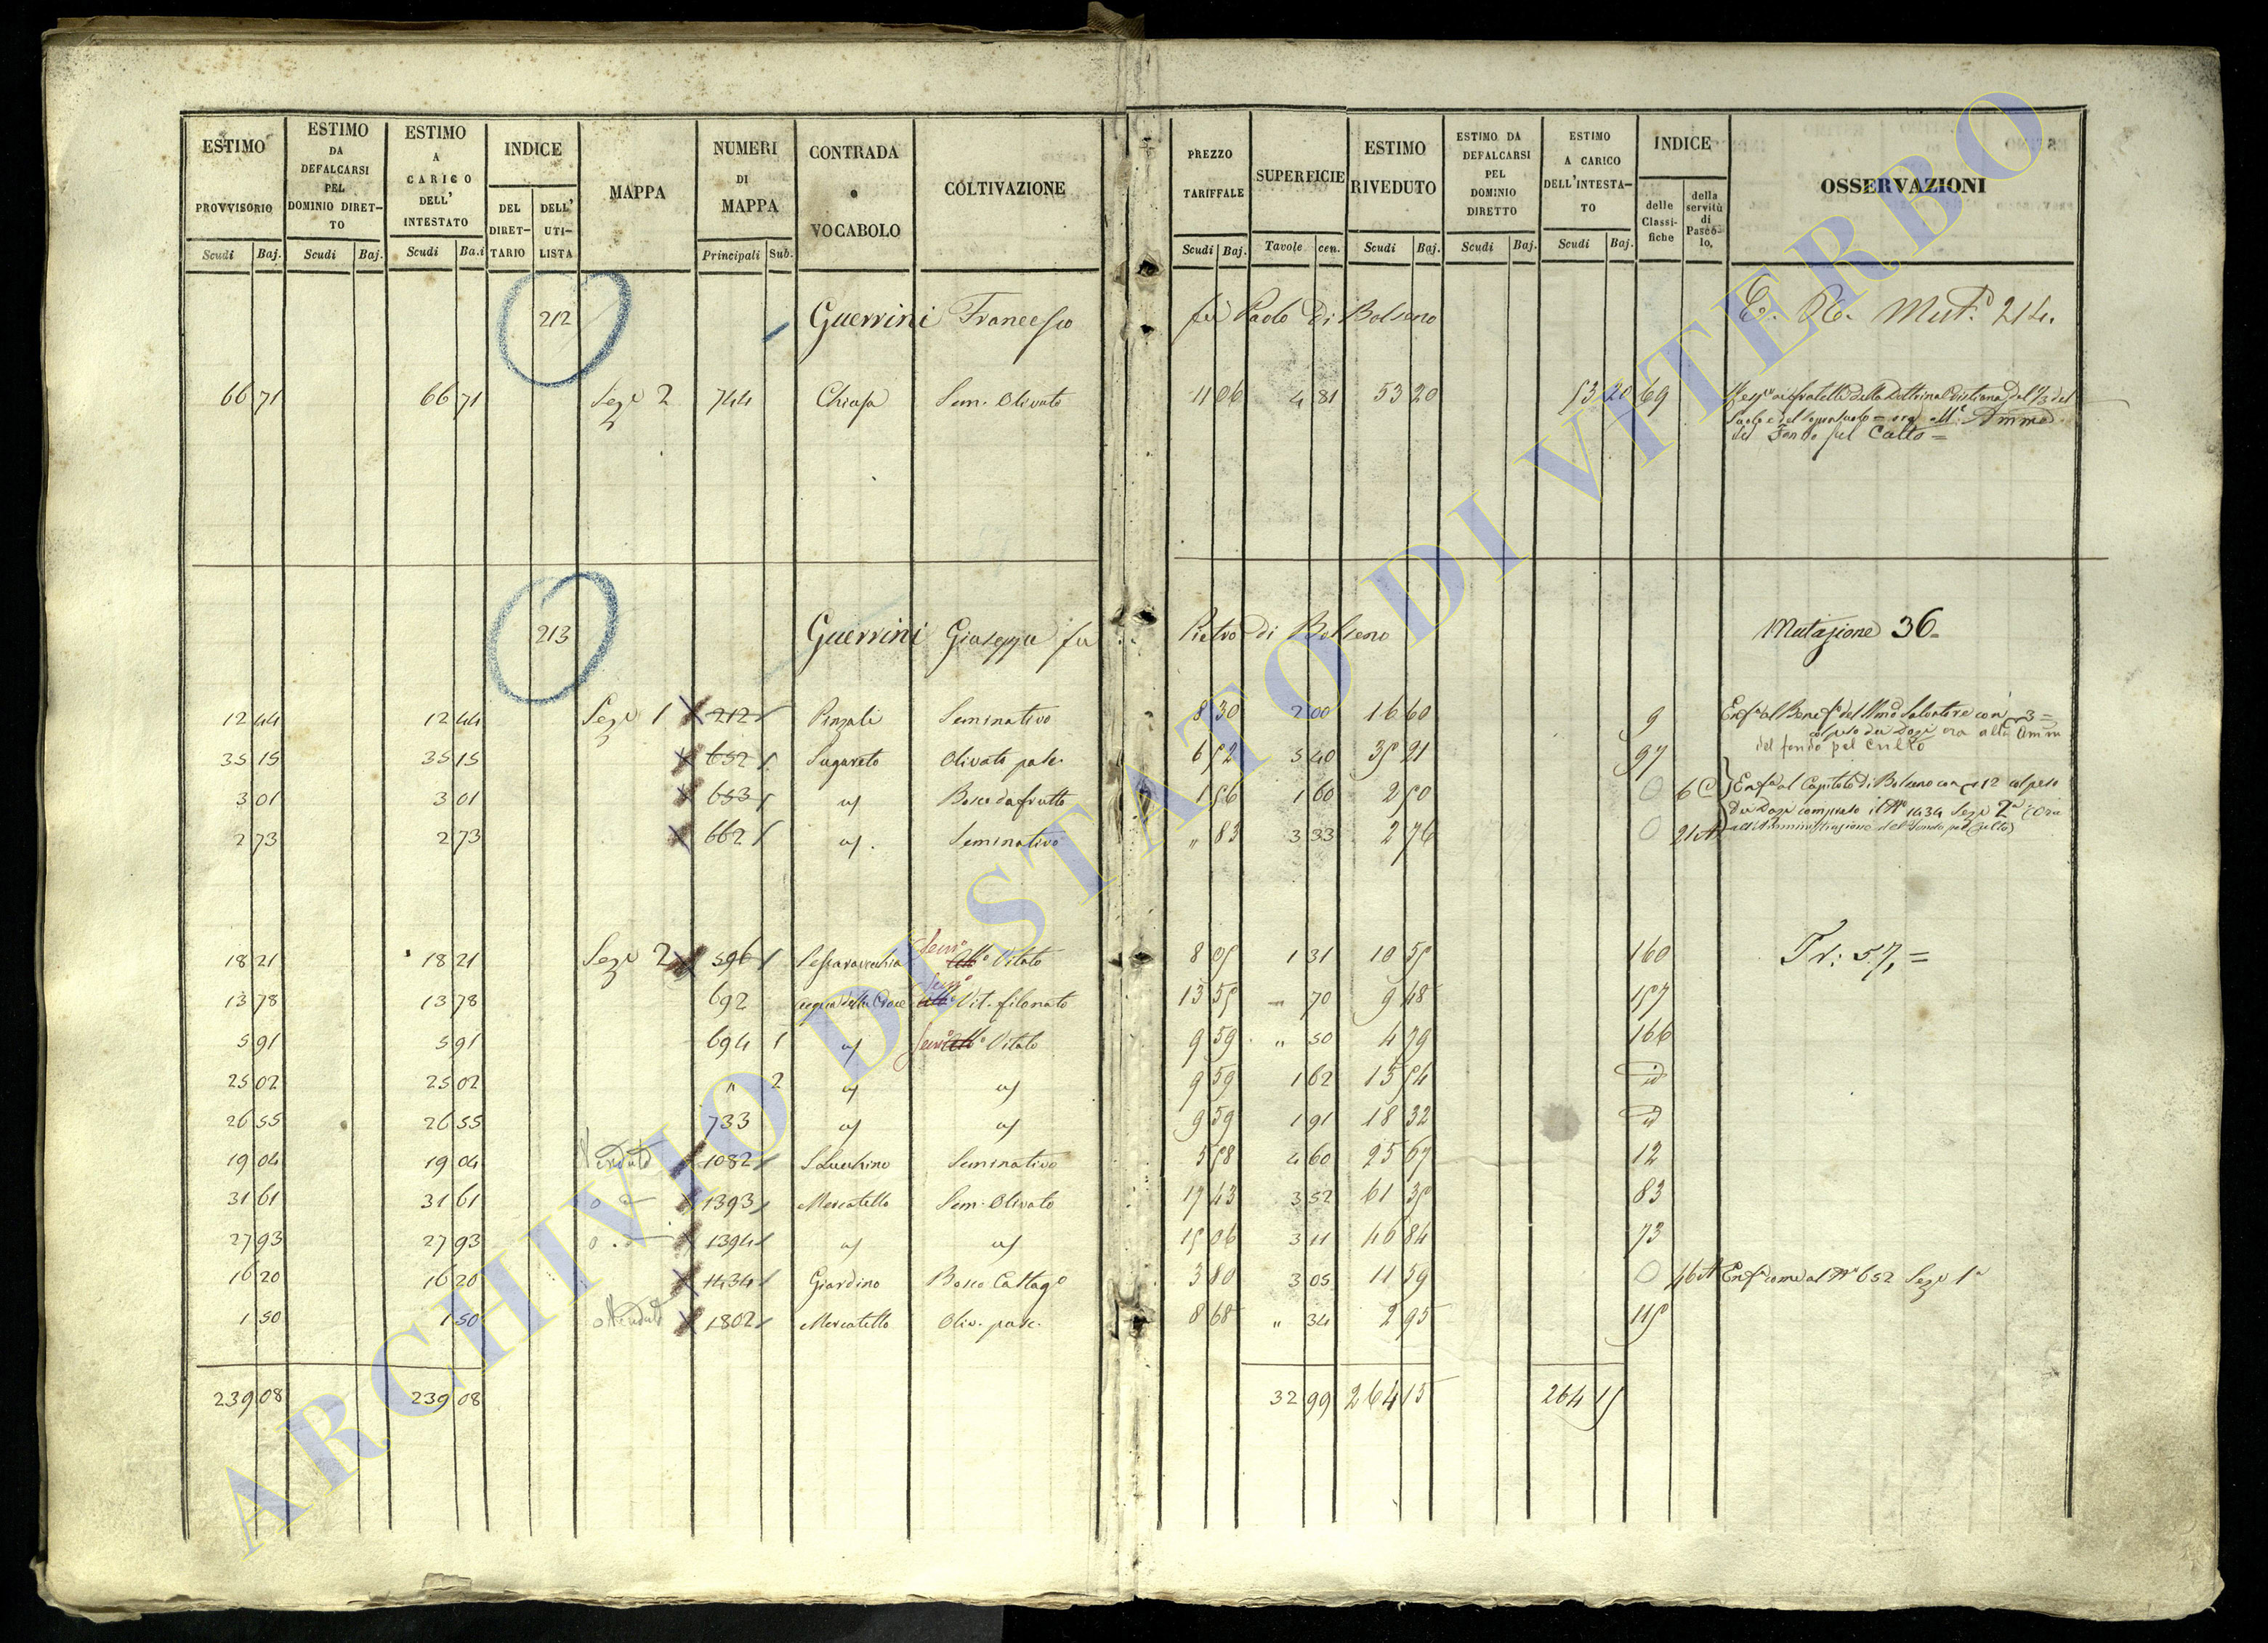 ESTIMO PROVVISORIO | ESTIMO DA DEFALCARSI PEL DOMINIO DIRETTO | ESTIMO A CARICO DELL' INTESTATO | INDICE | MAPPA | NUMERI DI MAPPA | CONTRADA o VOCABOLO | COLTIVAZIONE | PREZZO TARIFFALE | SUPERFICIE | ESTIMO RIVEDUTO | ESTIMO DA DEFALCARSI PEL DOMINIO DIRETTO | ESTIMO A CARICO DELL'INTESTATO | INDICE | OSSERVAZIONI
DEL DIRETTARIO | DELL' UTILISTA | delle Classifiche | della servitù di Pascolo,
Scudi | Baj. | Scudi | Baj. | Scudi | Ba.i | Principali | Sub. | Scudi | Baj. | Tavole | cen. | Scudi | Baj. | Scudi | Baj. | Scudi | Baj.
212 Guerrini Francesco fu Paolo di Bolseno
66 71 66 71 Seze 2 744 Sem. Olivato 11 06 4 81 53 20 53 20 69
del Fondo pel Culto =
213 Guerrini Giuseppe fu Pietro di Bolseno Mutazione 36
12 44 12 44 Seze 1 212 Pinzali Seminativo 8 30 2 00 16 60 9
35 15 35 15 652 Sugareto Olivato pasc. 6 52 5 40 35 21 97
del fondo pel Culto
3 01 3 01 653 Bosco da frutto 1 56 1 60 2 50 6 C Enfa al Capitolo di Bolseno con 12 col peso
2 73 2 73 662 Seminativo " 83 3 33 2 76 21 A
18 21 18 21 Seze 2 596 Semo Vitato 8 05 1 31 10 55 160 Tr: 57, =
13 78 13 78 692 Vit. filonato 13 55 70 9 48 157
5 91 5 91 694 1 Vitato 9 59 " 50 4 79 166
25 02 25 02 " 2 9 59 1 62 15 54 id
26 55 26 55 733 9 59 1 91 18 32 id
19 04 19 04 Venduto 1082 Seminativo 5 58 4 60 25 67 12
31 61 31 61 1393 Mercatello Sem. Olivato 17 43 3 52 61 35 83
27 93 27 93 1394 15 06 3 11 46 84 73
16 20 16 20 1434 Giardino Bosco Castago 3 80 3 05 11 59 46 A Enfa come al No 652 Seze 1a
1 50 1 50 Venduto 1802 Mercatello Oliv. pasc. 8 68 " 34 2 95 115
239 08 239 08 32 99 264 15 264 15
ARCHIVIO DI STATO DI VITERBO